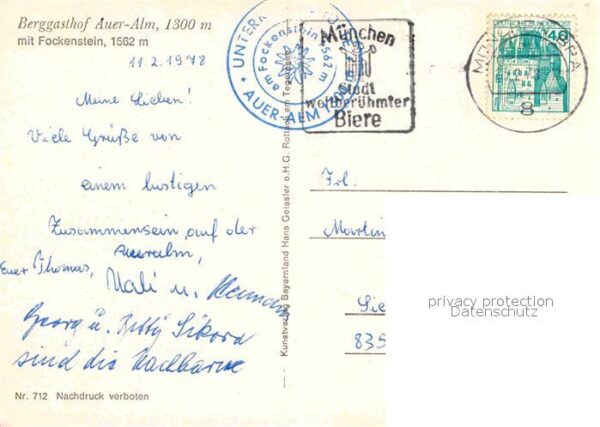 Berggasthof Auer-Alm, 1300 m
mit Fockenstein, 1562 m
11.2.1978
Meine Lieben!
Viele Grüße von
einem lustigen
Zusammensein auf der
Aueralm,
Euer Thomas,
Mali u. Hermann
Georg u. Betty Sikora
sind die Nachbarn
Nr. 712 Nachdruck verboten
Kunstverlag Bayernland Hans Geissler o.H.G. Rottach am Tegernsee
AUER-ALM
am Fockenstein 1562 m
München
Stadt
weltberühmter
Biere
8
40
Frl.
Martin
Sie
835
privacy protection
Datenschutz